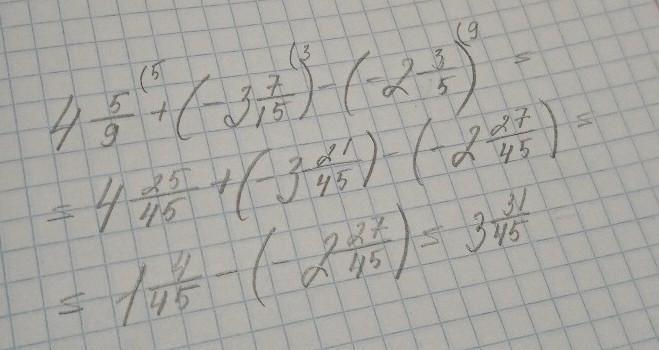 4 5/9 (5 + (-3 7/15 (3) - (-2 3/5) (9 =
= 4 25/45 + (-3 21/45) - (-2 27/45) =
= 1 4/45 - (-2 27/45) = 3 31/45